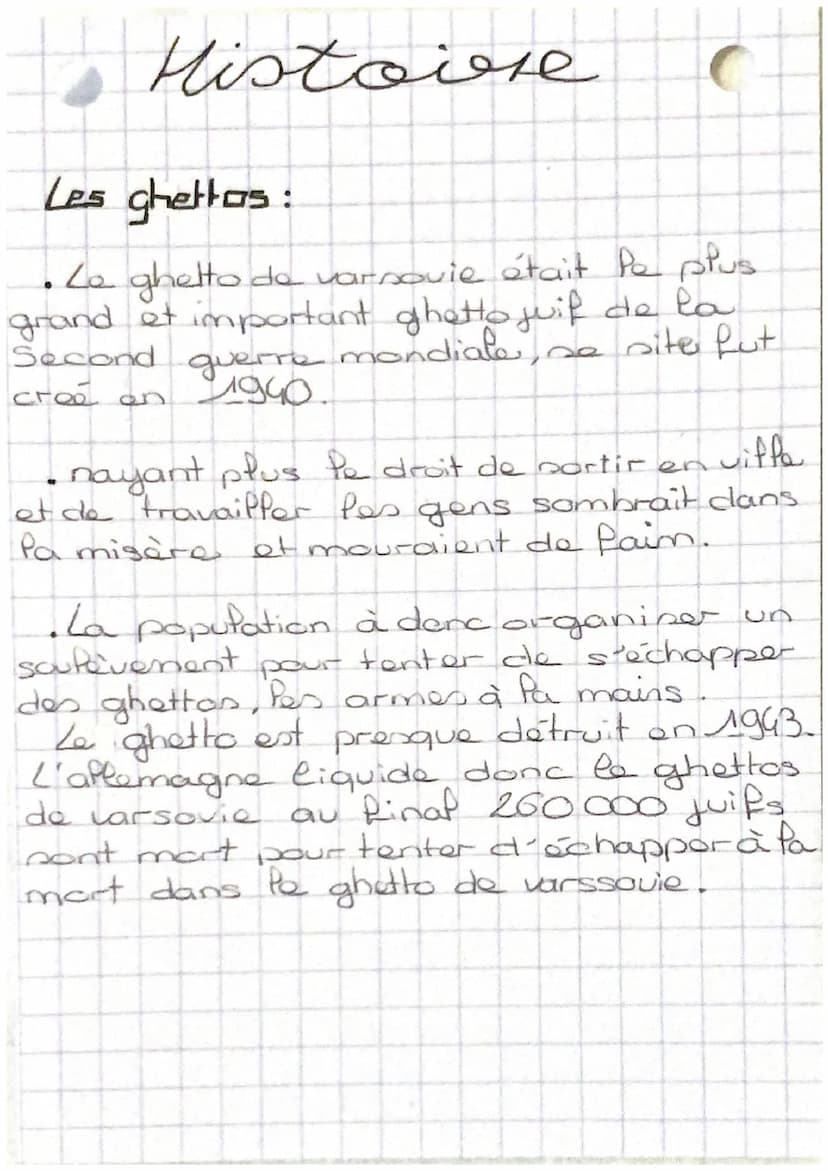 Histoire
Les ghettos :
. Le ghetto de varsovie était le plus
grand et important ghetto juif de la
Second guerre mondiale, se site fut
creé en 1940.
. nayant plus le droit de sortir en ville
et de travailler les gens sombrait dans
la misère et mouraient de faim.
. La population à donc organiser un
soulèvement pour tenter de s'échapper
des ghettos, les armes à la mains.
Le ghetto est presque détruit en 1943.
L'allemagne liquide donc le ghettos
de varsovie au final 260 000 juifs
sont mort pour tenter d'échapper à la
mort dans le ghetto de varssovie.